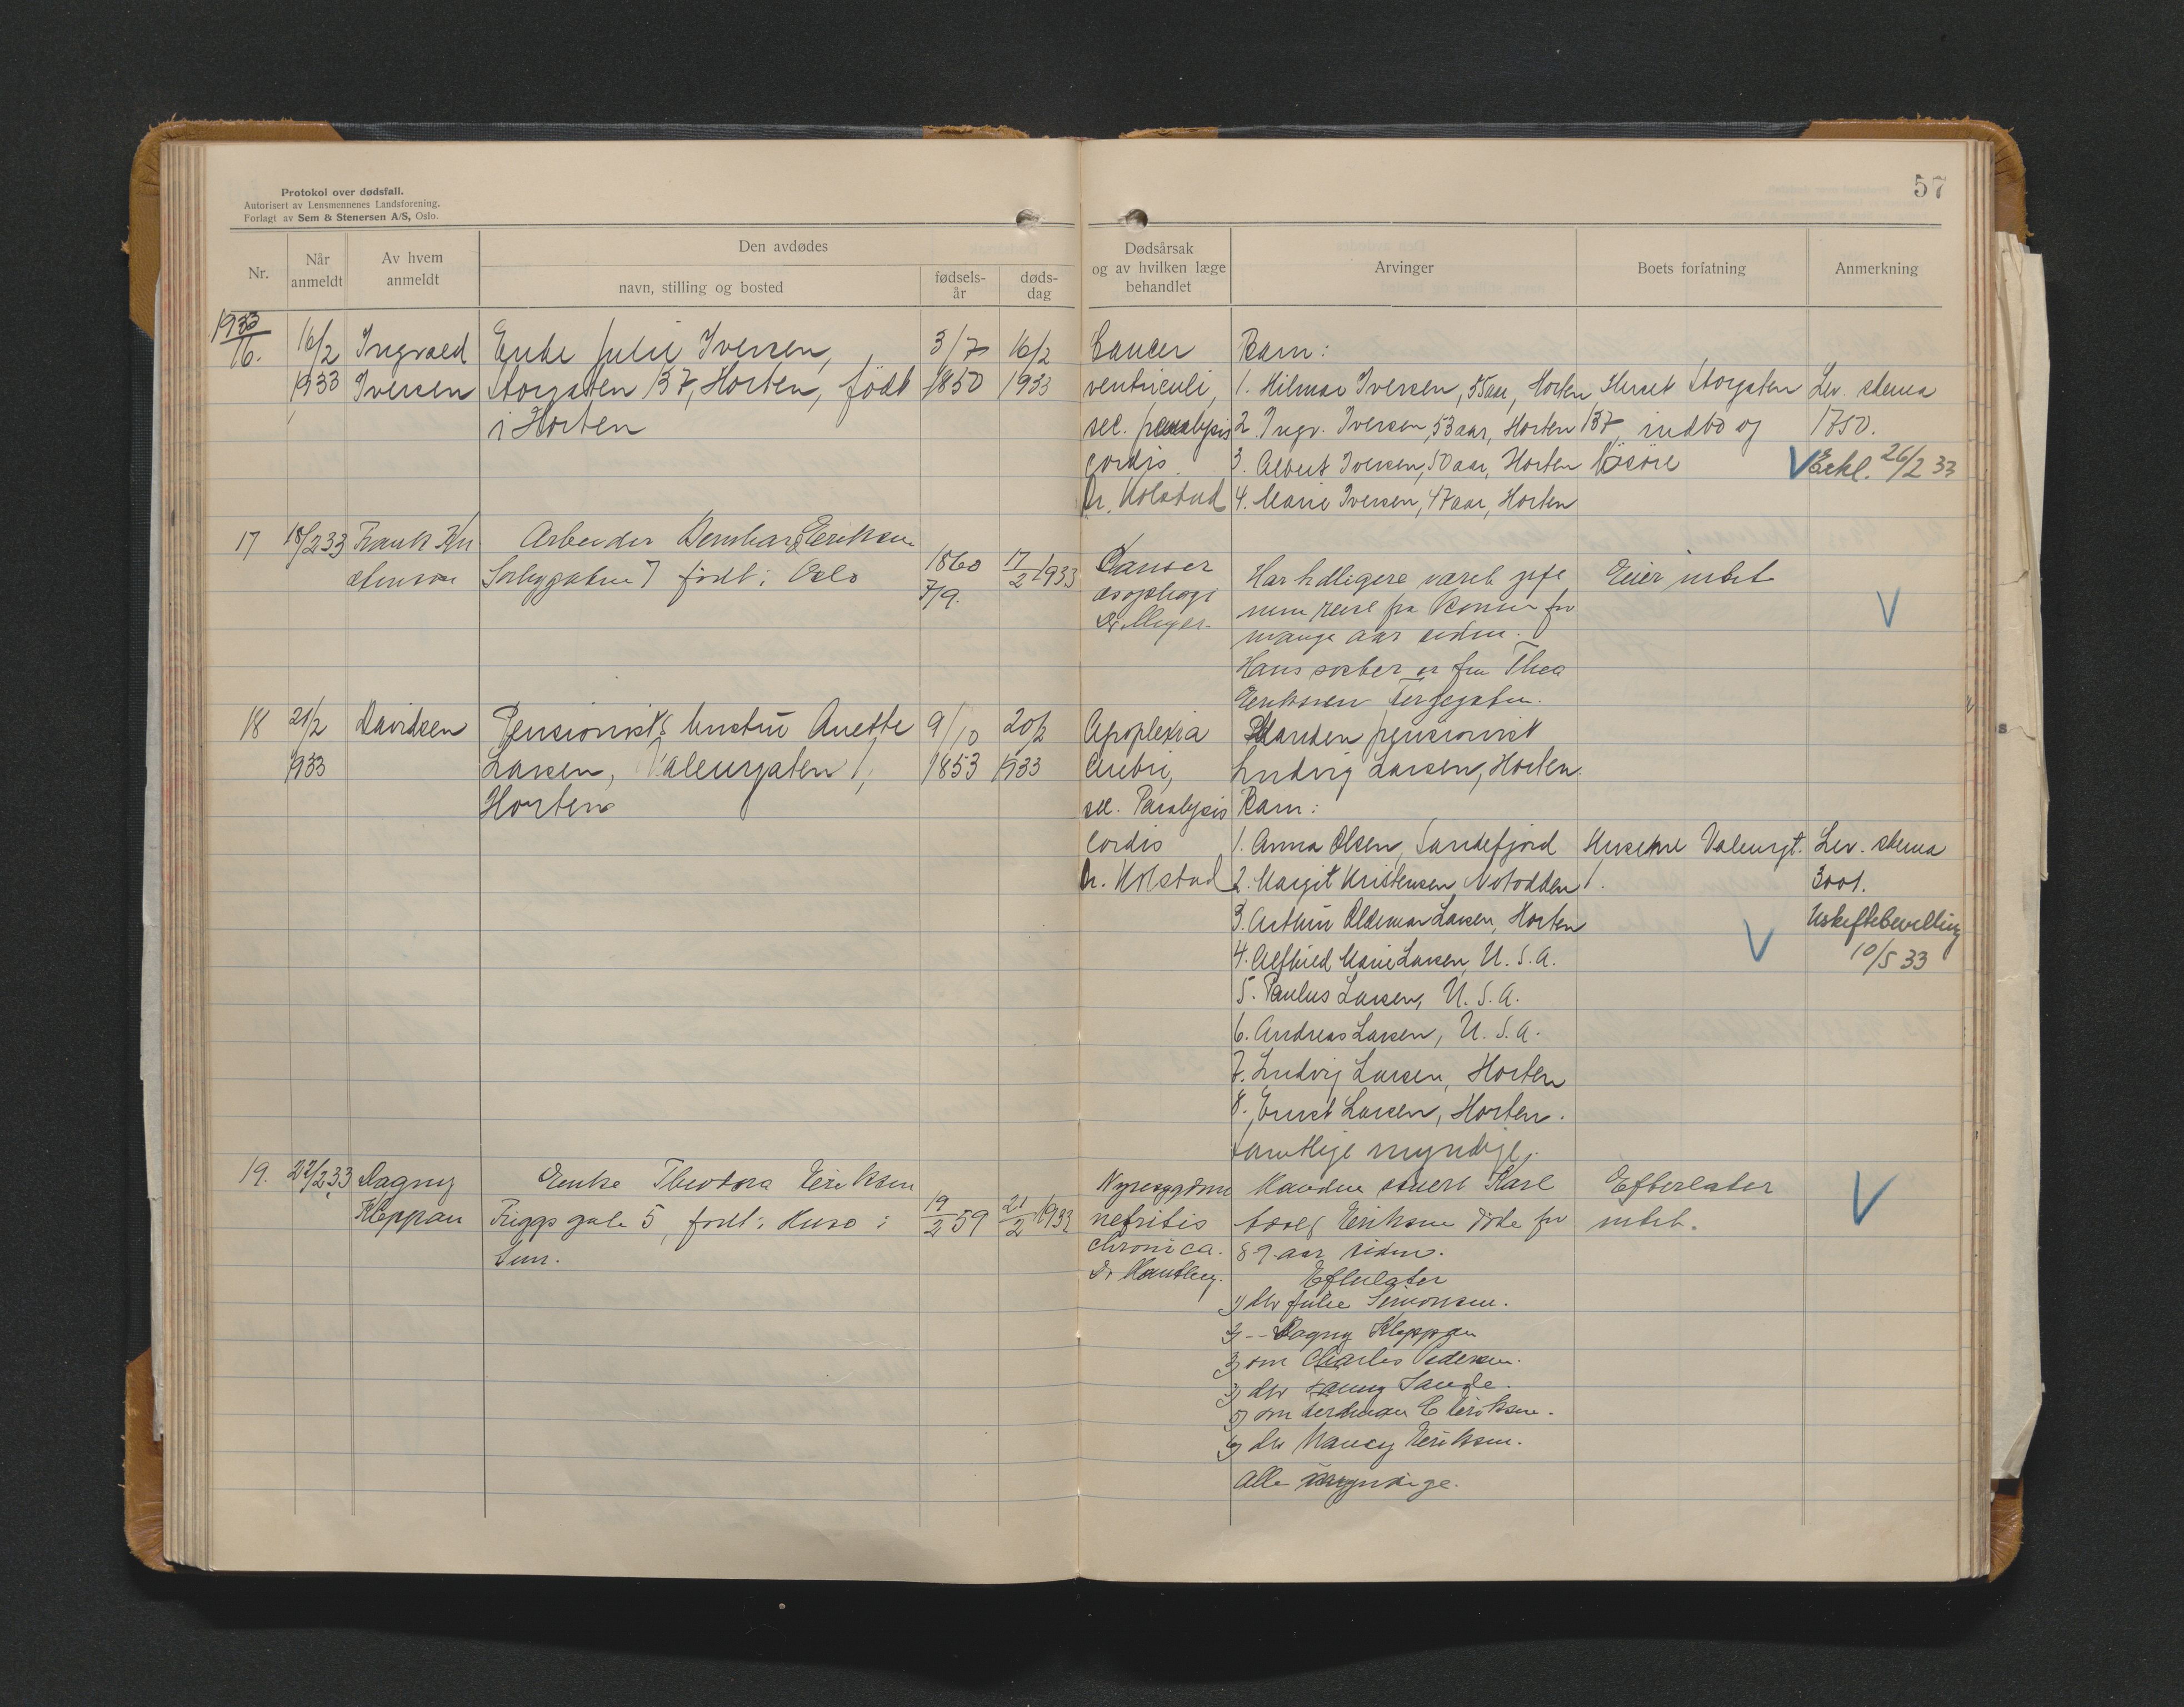 Protokol over dødsfall.
Autorisert av Lensmennenes Landsforening.
Forlagt av Sem & Stenersen A/S, Oslo.
57
Nr.
Når anmeldt
Av hvem anmeldt
Den avdødes
navn, stilling og bosted
fødsels-år
døds-dag
Dødsårsak og av hvilken læge behandlet
Arvinger
Boets forfatning
Anmerkning
1933
16.
16/2 1933
Ingvald Iversen
Enke Julie Iversen,
Storgaten 137, Horten, født
i Horten
3/7 1850
16/2 1933
Cancer
ventriculi,
sec. paralysis
cordis.
Dr. Kolstad
Barn:
1. Hilmar Iversen, 55 aar, Horten
2. Ingv. Iversen, 53 aar, Horten
3. Albert Iversen, 50 aar, Horten
4. Marie Iversen, 47 aar, Horten
Huset Storgaten
137, indbo og
løsøre
Lev. skema
1750.
Erkl. 26/2 33
17
18/2 33
Frank
Arbeider Bernhard Eriksen
7 født i Oslo
1860
7/9.
17/2 1933
Cancer
øsophagi
Dr Meyer.
Har tidligere været gift
men reist fra konen for
mange aar siden.
Hans søster er fru Thea
Eriksen
Eier intet
18
21/2 1933
Davidsen
Pensionists hustru Anette
Larsen, Valeurgaten 1,
Horten
9/10 1853
20/2 1933
Apoplexia
cerebri,
sec. Paralysis
cordis
Dr. Kolstad
Manden pensionist
Ludvig Larsen, Horten.
Barn:
1. Anna Olsen, Sandefjord
2. Margit Kristensen Notodden
3. Arthur Aldemar Larsen, Horten
4. Alfhild Marie Larsen, U.S.A.
5. Paulus Larsen, U.S.A.
6. Andreas Larsen, U.S.A.
7. Ludvig Larsen, Horten
8. Ernst Larsen, Horten.
samtlige myndige.
Huseiene Valeurgt.
1.
Lev. skema
3001.
Uskiftebevilling
10/5 33
19.
22/2 33
Dagny
Kleppan
Enke Theodora Eriksen
Friggs gate 5, født i
19/2 59
21/2 1933
Nyresygdom
nefritis
chronica.
Dr
Manden Karl
Eriksen døde for
8 9 aar siden.
Efterlater
1) dtr Julie Simonsen.
2) -- Dagny Kleppan
3) søn Charles Pedersen.
3) dtr Fanny
5) søn Eriksen.
6) dtr Nancy Eriksen.
Alle myndige.
Efterlater
intet.